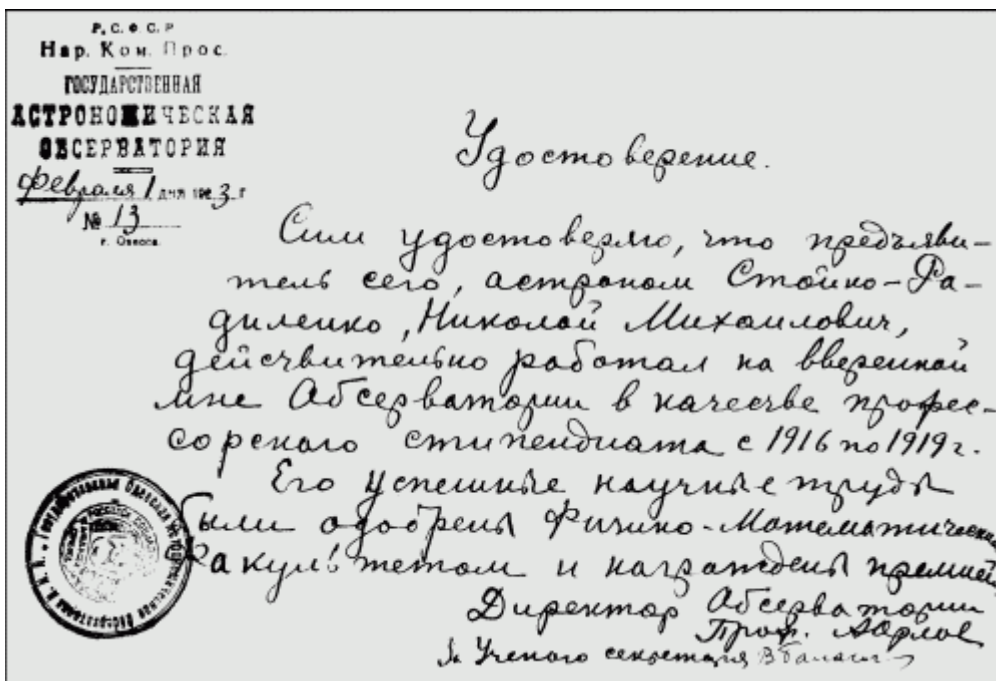 Р. С. Ф. С. Р
Нар. Ком. Прос.
ГОСУДАРСТВЕННАЯ
АСТРОНОМИЧЕСКАЯ
ОБСЕРВАТОРИЯ
Февраля 1 дня 1923 г
№ 13
г. Одесса.
Удостоверение.
Сим удостоверяю, что предъяви-
тель сего, астроном Стойко-Ра-
диленко, Николай Михайлович,
действительно работал на вверенной
мне Обсерватории в качестве профес-
сорского стипендиата с 1916 по 1919 г.
Его успешные научные труды
были одобрены Физико-Математическим
Факультетом и награждены премией
Директор Обсерватории
Проф. АОрлов
За Ученого секретаря